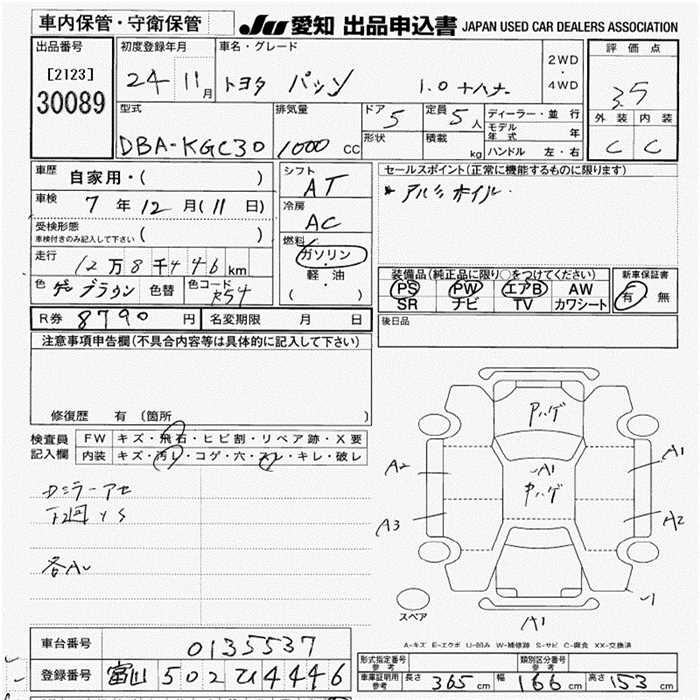 車内保管・守衛保管
JU 愛知 出品申込書 JAPAN USED CAR DEALERS ASSOCIATION
出品番号
[2123]
30089
初度登録年月
24 11月
車名・グレード
トヨタ パッソ 1.0 +ハナ
2WD
・
4WD
評価点
3.5
外装 内装
C C
型式
DBA-KGC30
排気量
1000 cc
ドア 5
形状
定員 5人
積載 kg
ディーラー・並行
モデル年式 年
ハンドル 左・右
車歴 自家用・( )
車検 7年12月(11日)
受検形態
車検付きのみ記入して下さい ( )
走行
12万8千446km
色 ブラウン 色替 色コード R54
シフト
AT
冷房
AC
燃料
ガソリン
・
軽油
( )
セールスポイント(正常に機能するものに限ります)
アルミホイル.
装備品(純正品に限り○をつけてください)
PS PW エアB AW
SR ナビ TV カワシート
新車保証書
有 無
R券 8790円 名変期限 月 日
後日品
注意事項申告欄(不具合内容等は具体的に記入して下さい)
修復歴 有(箇所 )
検査員記入欄
FW キズ・飛石・ヒビ割・リペア跡・X要
内装 キズ・汚レ・コゲ・穴・スレ・キレ・破レ
下廻りS
各AU
Aハゲ
A1
A2
A1
A3
A2
A1
スペア
A-キズ E-エクボ U-凹み W-補修跡 S-サビ C-腐食 XX-交換済
車台番号 0135537
登録番号 富山 502 ひ 4446
形式指定番号 参考
類別区分番号 参考
車庫証明用 参考 長さ 365cm 幅 166cm 高さ 153cm